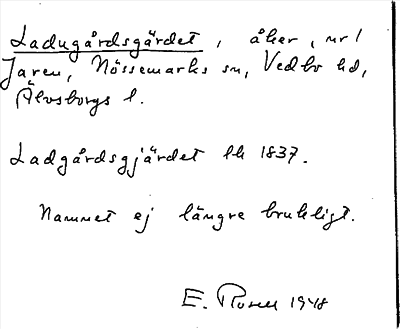 Ladugårdsgärdet, åker, nr 1
Jaren, Nössemarks sn, Vedbo hd,
Älvsborgs l.
Ladgårdsgjärdet lh 1837.
Namnet ej längre brukligt.
E. Rosen 1948